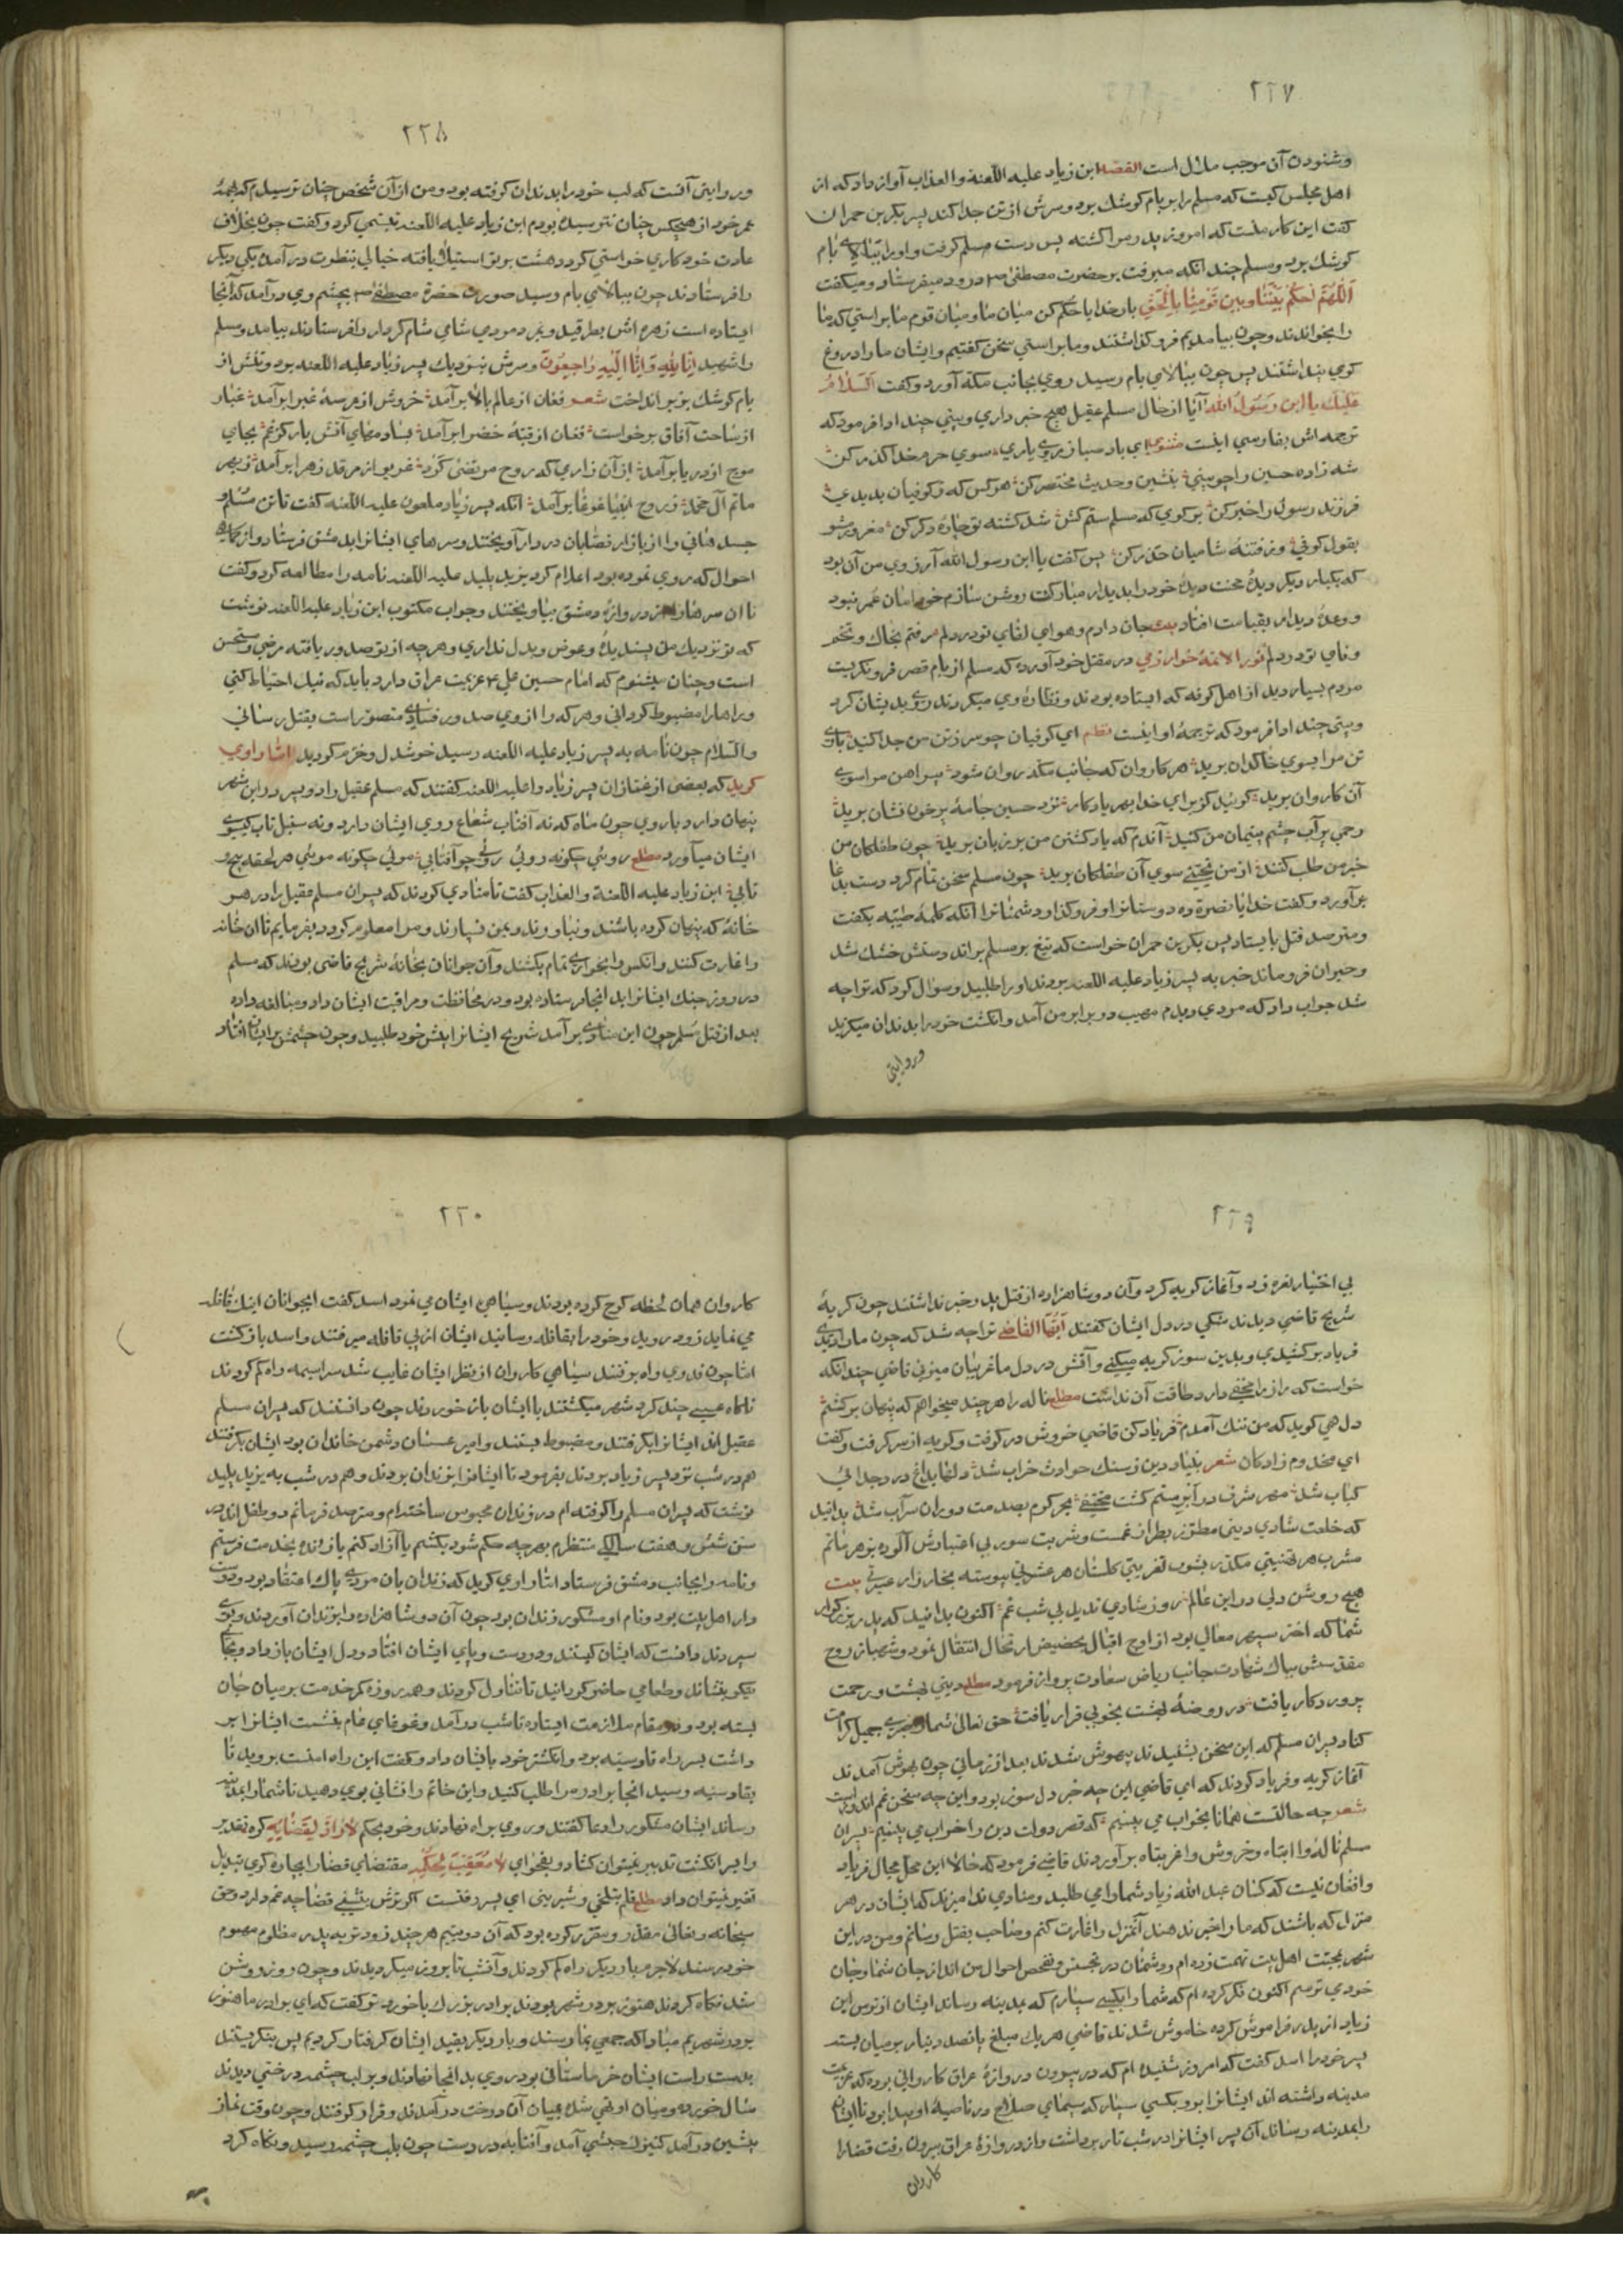 ٢٢٧
وشنودن آن موجب ملال است القصه ابن زیاد علیه اللّعنة والعذاب آواز داد که از
اهل مجلس کیست که مسلم را بر بام کوشك برد وسرش از تن جدا کند پسر بکر بن حمران
کفت این کار منست که امروز پدر مرا کشته پس دست مسلم کرفت واورا ببالای بام
کوشك برد ومسلم چندانکه میرفت بر حضرت مصطفی ص درود میفرستاد ومیکفت
اَللّهُمَّ احکُمْ بَیْنَنَا وبین قَوْمِنَا بِالْحَقِّ بار خدایا حکم کن میان ما ومیان قوم ما براستی که ما
را بخواندند وچون بیامدیم فرو کذاشتند وما براستی سخن کفتیم وایشان ما را دروغ
کوی پنداشتند پس چون ببالای بام رسید روی بجانب مکه آورد وکفت اَلسَّلَامُ
عَلَیْكَ یا ابن رَسُولَ الله آیا از حال مسلم عقیل هیچ خبر داری وبیتی چند ادا فرمود که
ترجمه اش بفارسی اینست مثنوی ای باد صبا ز روی یاری سوی حرم خدا کذر کن
شه زاده حسین را چو بینی بنشین وحدیث مختصر کن هر کس که ز کوفیان بد بدی
فرزند رسول را خبر کن بر کوی که مسلم ستم کش شد کشته تو چاره دکر کن مغرور مشو
بقول کوفی وز فتنهٔ شامیان حذر کن پس کفت یا ابن رسول الله آرزوی من آن بود
که یکبار دیکر دیدهٔ محنت دیدهٔ خود را بدیدار مبارکت روشن سازم خود امان عمر نبود
ووعدهٔ دیدار بقیامت افتاد بیت جان دادم وهوای لقای تو در دلم رفتم بخاك وتخم
وفای تو در دلم نور الائمهٔ خوارزمی در مقتل خود آورده که مسلم از بام قصر فرو نکریست
مردم بسیار دید از اهل کوفه که ایستاده بودند ونظارهٔ وی میکردند روی بدیشان کرد
وبیتی چند ادا فرمود که ترجمهٔ او اینست نظم ای کوفیان چو سر ز تن من جدا کنید باری
تن مرا بسوی خاکدان برید هر کاروان که جانب مکه روان شود پیراهن مرا سوی
آن کاروان برید کوئید کز برای خدا بهر یادکار نزد حسین جامهٔ پرخون نشان برید
رحمی بر آب چشم یتیمان من کنید آندم که یاد کشتن من بر زبان برید چون طفلکان من
خبر من طلب کنند از من تحیتی سوی آن طفلکان برید چون مسلم سخن تمام کرد دست بدعا
بر آورد وکفت خدایا نصرة ده دوستانرا وفرو کذار دشمنانرا انکه کلمهٔ طیّبه بکفت
ومترصد قتل بایستاد پس بکر بن حمران خواست که تیغ بر مسلم براند دستش خشك شد
وحیران فرو ماند خبر به پسر زیاد علیه اللعنه بردند اورا طلبید وسؤال کرد که ترا چه
شد جواب داد که مردی دیدم مهیب در برابر من آمد وانکشت خود را بدندان میکزید
وروایتی
٢٢٨
وروایتی آنست که لب خود را بدندان کرفته بود ومن از آن شخص چنان ترسیدم که همهٔ
عمر خود از هیچکس چنان نترسیده بودم ابن زیاد علیه اللعنه تبسمی کرد وکفت چون بخلاف
عادت خود کاری خواستی کرد دهشت بر تو استیلا یافته خیالی بنظرت در آمده یکی دیکر
را فرستادند چون ببالای بام رسید صورت حضرة مصطفی ص بچشم وی در آمد که آنجا
ایستاده است زهره اش بطرقید وبمرد مردی شامی شام کردار را فرستادند بیامد ومسلم
را شهید اِنّا لِلّٰهِ وَاِنّا اِلَیْهِ رَاجِعُونَ وسرش بنزدیك پسر زیاد علیه اللعنه برد وتنش از
بام کوشك بزیر انداخت شعر فغان از عالم بالا بر آمد خروش از مرسهٔ غبرا بر آمد غبار
از ساحت آفاق برخواست فغان از قبّهٔ خضرا بر آمد
موج از دریا بر آمد از آن زاری که روح مرتضی کرد غریو از مرقد زهرا بر آمد ز بهر
ماتم آل محمد ز روح انبیا غوغا بر آمد انکه پسر زیاد ملعون علیه اللعنه کفت تا تن مسلم و
جسد هانی را از بازار قصّابان در دار آویختند وسرهای ایشانرا بدمشق فرستاد واز
احوال که روی نموده بود اعلام کرد یزید پلید علیه اللعنه نامه را مطالعه کرد وکفت
تا آن سرها را از دروازهٔ دمشق بیاویختند وجواب مکتوب ابن زیاد علیه اللعنه نوشت
که تو نزدیك من پسندیدهٔ وعوض وبدل نداری وهر چه از تو صدور یافته مرضی ومستحسن
است وچنان میشنوم که امام حسین علی ع عزیمت عراق دارد باید که نیك احتیاط کنی
وراهها را مضبوط کردانی وهر که را از وی صدور فسادی متصوّر است بقتل رسانی
والسّلام چون نامه به پسر زیاد علیه اللعنه رسید خوشدل وخرم کردید امّا راوی
کوید که بعضی از غمّازان پسر زیاد را علیه اللعنه کفتند که مسلم عقیل را دو پسر در این شهر
پنهان دارد با روی چون ماه که نه آفتاب شعاع روی ایشان دارد ونه سنبل تاب کیسوی
ایشان میآورد مطلع روئی چکونه روئی روئی چو آفتابی موئی چکونه موئی هر حلقه پیچ و
تابی ابن زیاد علیه اللّعنة والعذاب کفت تا منادی کردند که پسران مسلم عقیل را در هر
خانهٔ که پنهان کرده باشند ونیاورند وبمن نسپارند ومرا معلوم کردد بفرمایم تا آن خانه
را غارت کنند وانکس را بخواری تمام بکشند وآن جوانان بخانهٔ شریح قاضی بودند که مسلم
در روز جنك ایشانرا بد انجا فرستاده بود ودر محافظت ومراقبت ایشان داد مبالغه داده
بعد از قتل مسلم چون این منادی بر آمد شریح ایشانرا پیش خود طلبید وچون چشمش بر ایشان افتاد
٢٢٩
بی اختیار نعره زد وآغاز کریه کرد وآن دو شاهزاده از قتل پدر خبر نداشتند چون کریهٔ
شریح قاضی دیدند شکی در دل ایشان کفتند اَیُّهَا القَاضی ترا چه شد که چون ما را دیدی
فریاد بر کشیدی وبدین سوز کریه میکنی وآتش در دل ما غریبان میزنی قاضی چندانکه
خواست که راز را مخفی دارد طاقت آن نداشت مطلع ناله را هر چند میخواهم که پنهان بر کشم
دل هی کوید که من تنك آمدم فریاد کن قاضی خروش در کرفت وکریه از سر کرفت وکفت
ای مخدوم زادکان شعر بنیاد دین ز سنك حوادث خراب شد دلها بداغ درد جدائی
کباب شد مهر شرف در ابر ستم کشت مختفی بحر کرم بصدمت دوران سراب شد بدانید
که خلعت شادی دینی مطرّز بطراز غمست وشربت سور بی اعتبارش آلوده بزهر ماتم
مشرب هر تهنیتی مکدر بشوب تعزیتی کلستان هر عشرتی پیوسته بخارزار عبرتی بیت
هیچ روشن دلی در این عالم روز شادی ندید بی شب غم اکنون بدانید که پدر بزرکوار
شما که اختر سپهر معالی بود از اوج اقبال بحضیض ارتحال انتقال نمود وشهباز روح
مقدسش ببال شهادت جانب ریاض سعادت پرواز فرمود مطلع دینی بهشت ورحمت
پروردکار یافت در روضهٔ بهشت بخوبی قرار یافت حق تعالی شما را صبری جمیل کرامت
کناد پسران مسلم که این سخن بشنیدند بیهوش شدند بعد از زمانی چون بهوش آمدند
آغاز کریه وفریاد کردند که ای قاضی این چه خبر دل سوز بود واین چه سخن غم اندوز است
شعر چه حالتست همانا بخواب می بینیم که قصر دولت دین را خراب می بینیم پسران
مسلم ناله وا ابتاه وخروش وا غربتاه بر آوردند قاضی فرمود که حالا این محل مجال فریاد
وافغان نیست که کسان عبد الله زیاد شما را می طلبند ومنادی ندا میزند که ایشان در هر
منزل که باشند که ما را خبر ندهند آنمنزل را غارت کنم وصاحب بقتل رسانم ومن در این
شهر بمحبّت اهل بیت تهمت زده ام ودشمنان در تجسّس وتفحص احوال من اند از جان شما وجان
خود می ترسم اکنون فکر کرده ام که شما را بکسی سپارم که بمدینه رساند ایشان از ترس ابن
زیاد از پدر فراموش کرده خاموش شدند قاضی هر یك مبلغ پانصد دینار بر میان بست
پسر خود را اسد کفت که امروز شنیده ام که در بیرون دروازهٔ عراق کاروانی بوده که عزیمت
مدینه داشته اند ایشانرا ببر وبکسی سپار که سیمای صلاح در ناصیهٔ او پیدا بود تا ایشان
را بمدینه رساند آن پسر ایشانرا در شب تار برداشت واز دروازهٔ عراق بیرون رفت قضارا
کاروان
٢٣٠
کاروان همان لحظه کوچ کرده بودند وسیاهی ایشان می نمود اسد کفت ایجوانان اینك قافله
می نماید زود بروید وخود را بقافله رسانید ایشان از پی قافله میرفتند واسد باز کشت
امّا چون قدری راه برفتند سیاهی کاروان از نظر ایشان غایب شد سراسیمه راه کم کردند
ناکاه عسسی چند کرد شهر میکشتند با ایشان باز خوردند چون دانستند که پسران مسلم
عقیل اند ایشانرا بکرفتند ومضبوط بستند وامیر عسسان دشمن خاندان بود ایشان بکرفتند
هم در شب نزد پسر زیاد بردند بفرمود تا ایشانرا بزندان بردند وهم در شب به یزید پلید
نوشت که پسران مسلم را کرفته ام در زندان محبوس ساختدام ومترصد فرمانم دو طفل اند در
سن شش وهفت سالکی منتظرم بهر چه حکم شود بکشم یا آزاد کنم یا زنده بخدمت فرستم
ونامه را بجانب دمشق فرستاد امّا راوی کوید که زندان بان مردی پاك اعتقاد بود ودوست
دار اهل بیت بود ونام او مشکور زندان بود چون آن دو شاهزاده را بزندان آوردند وبوی
سپردند دانست که ایشان کیستند ودر دست وپای ایشان افتاد ودل ایشان باز داد وبجای
نیکو بنشاند وطعامی حاضر کردانید تا تناول کردند وهمه روزه کمر خدمت بر میان جان
بسته بود ودر مقام ملازمت ایستاده تا شب در آمد وغوغای عام بنشست ایشانرا بر
داشت بسر راه قادسیّه برد وانکشتر خود بایشان داد وکفت این راه امنست بروید تا
بقادسیه رسید انجا برادر مرا طلب کنید واین خاتم را نشانی بوی دهید تا شما را بمدینه
رساند ایشان مشکور را دعا کفتند وروی براه نهادند وخود بحکم لَا رَادَّ لِقَضَائِهِ کره تقدیر
را بسر انکشت تدبیر نمیتوان کشاد وبفحوای لَا مُعَقِّبَ لِحُکْمِهِ مقتضای قضا را بچاره کری تبدیل
تغیر نمیتوان داد مطلع قلم بتلخی وشیرینی ای پسر رفتست اکر ترش بنشینی قضا چه غم دارد وحق
سبحانه وتعالی مقدر ومقرر کرده بود که آن دو یتیم هر چند زودتر به پدر مظلوم معصوم
خود رسند لاجرم بار دیکر راه کم کردند وآنشب تا بروز میکردیدند وچون روز روشن
شد نکاه کردند هنوز بر در شهر بودند برادر بزرك با خوردتر کفت که ای برادر ما هنوز
بر در شهریم مبادا که جمعی بما رسند وبار دیکر بقید ایشان کرفتار کردیم پس بنکریستند
بدست راست ایشان خرماستانی بود روی بد انجا نهادند وبر لب چشمه درختی دیدند
سال خورده ومیان او تهی شده بمیان آن درخت در آمدند وقرار کرفتند وچون وقت نماز
پیشین در آمد کنیزك حبشی آمد وآفتابه در دست چون بلب چشمه رسید ونکاه کرد